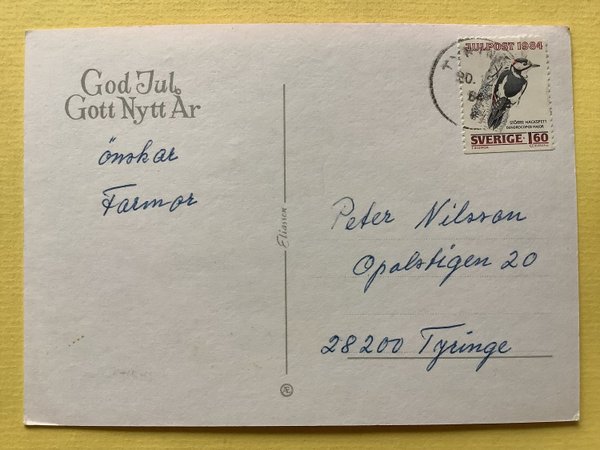 God Jul
Gott Nytt År
önskar
Farmor
Eliasson
JULPOST 1984
STÖRRE HACKSPETT
DENDROCOPOS MAJOR
SVERIGE 1.60
20.
Peter Nilsson
Opalstigen 20
28200 Tyringe